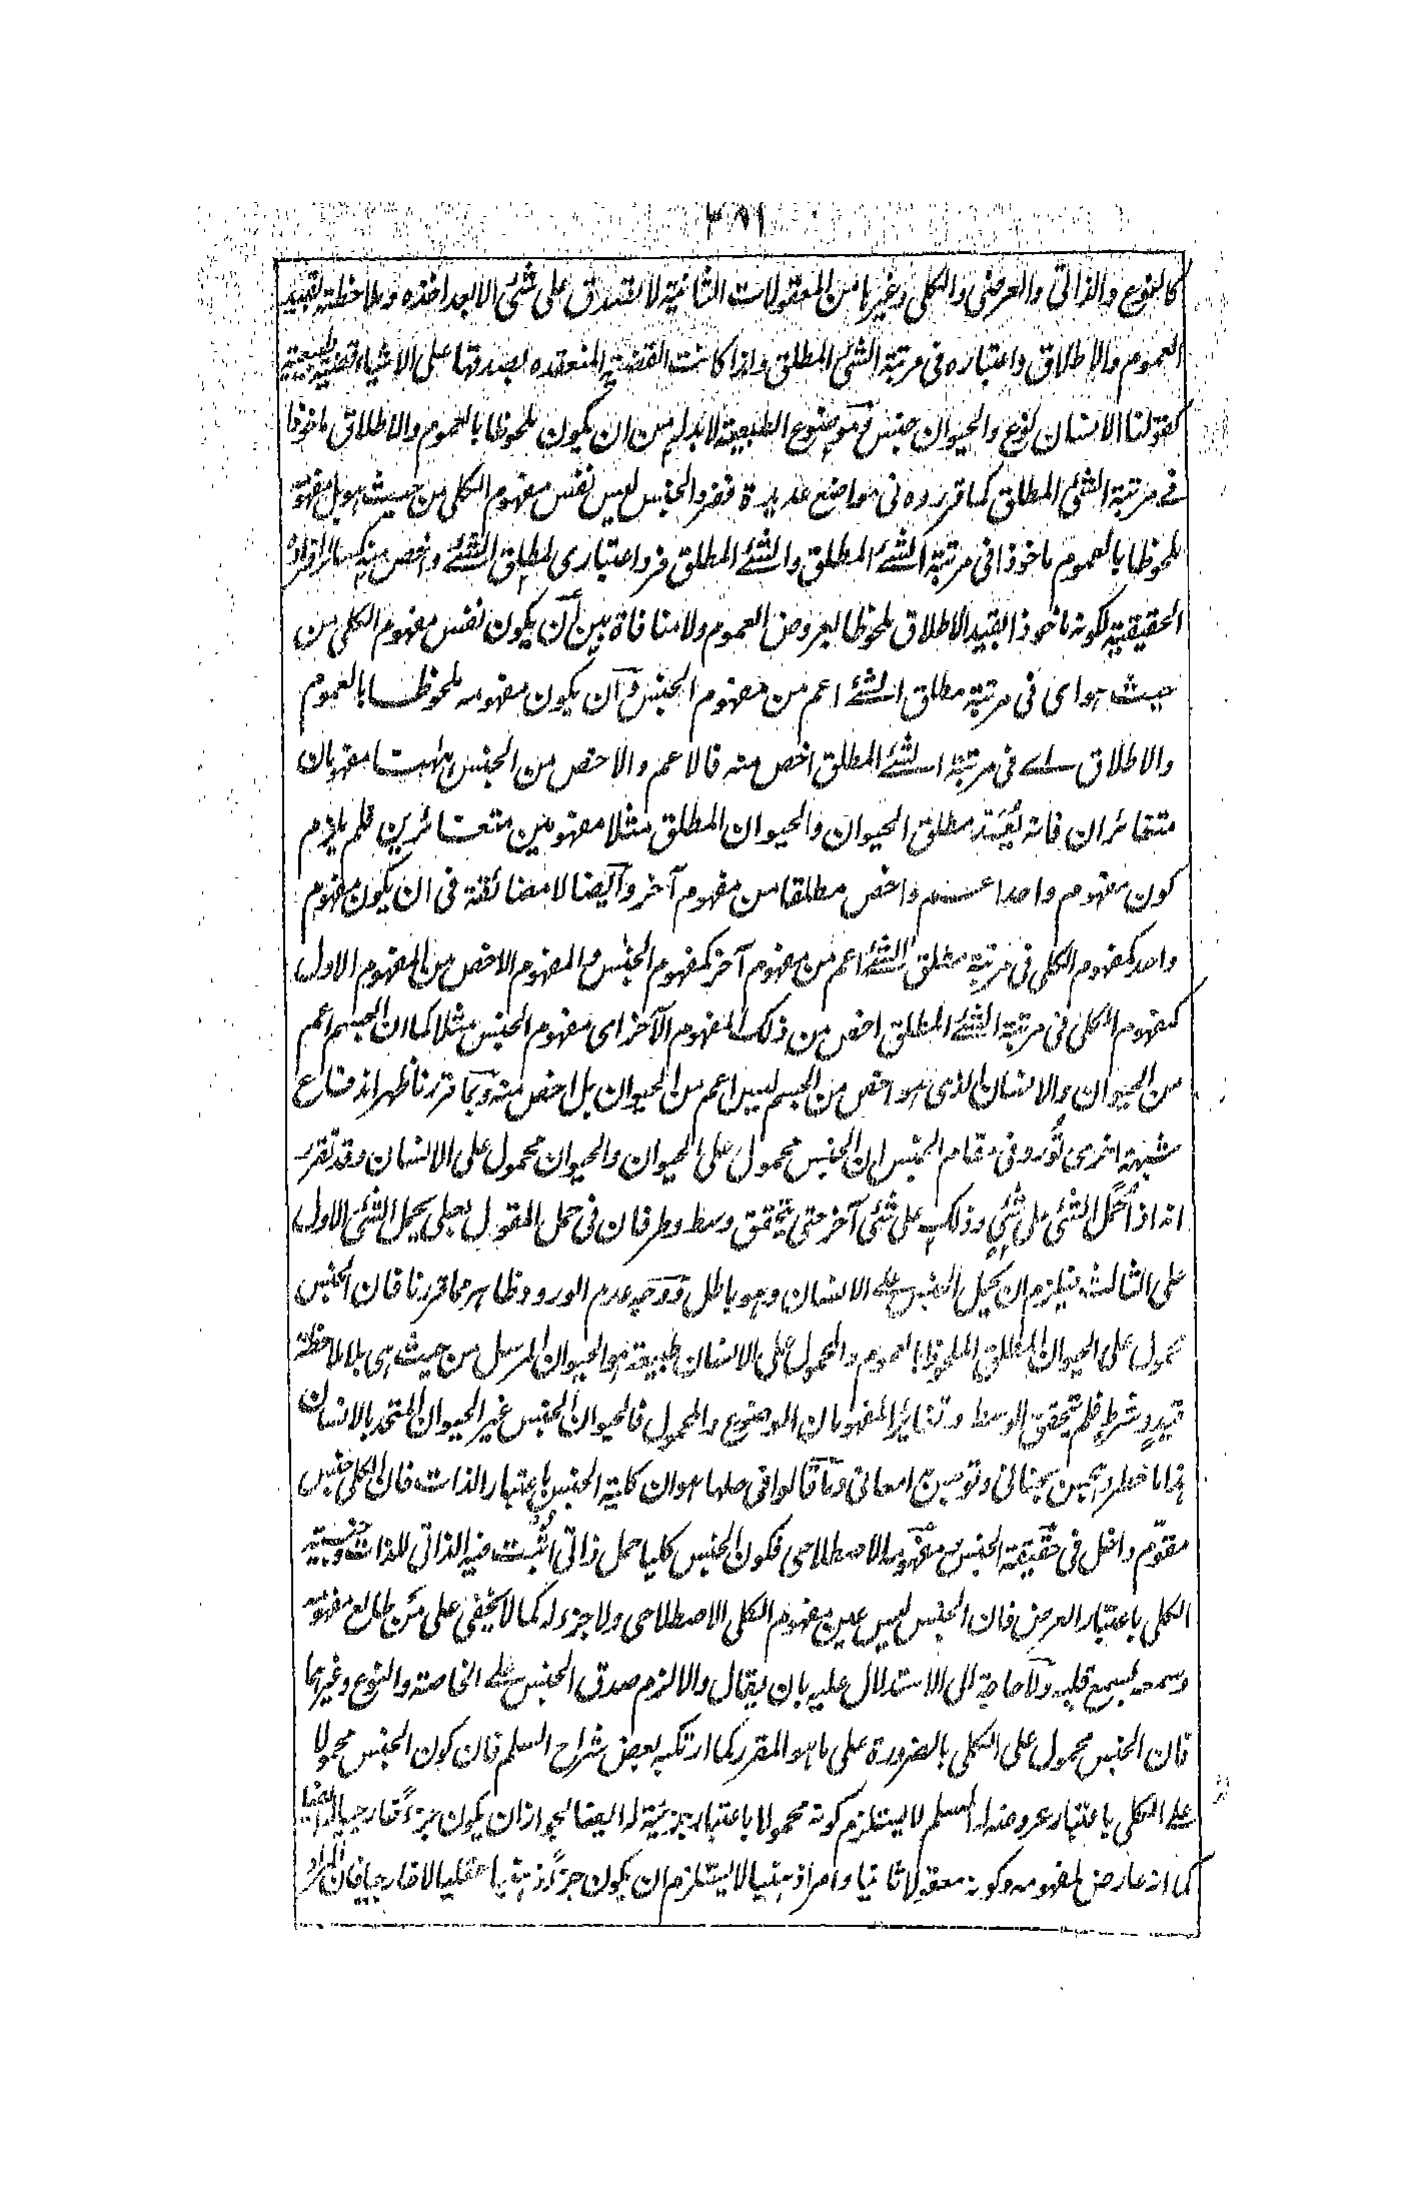 ٣٨١
كالنوع والذاتى والعرضى والكلى وغيرها من المعقولات الثانية لا تصدق على شئ الا بعد اخذه وملاحظته بقيد
العموم والاطلاق واعتباره فى مرتبة الشئ المطلق واذا كانت القضية المنعقدة بصدقها على الاشياء قضية طبيعية
كقولنا الانسان نوع والحيوان جنس وموضوع الطبيعية لا بد له من ان يكون ملحوظا بالعموم والاطلاق ماخوذا
فے مرتبة الشئ المطلق كما قرروه فى مواضع عديدة ففرد الجنس ليس نفس مفهوم الكلى من حيث هو بل مفهومه
ملحوظا بالعموم ماخوذا فى مرتبة الشئ المطلق والشئ المطلق فرد اعتبارى لمطلق الشئ واخص منه كسائر افراده
الحقيقية لكونه ماخوذا بقيد الاطلاق ملحوظا بعروض العموم ولا منافاة بين ان يكون نفس مفهوم الكلى من
حيث هو اى فى مرتبة مطلق الشئ اعم من مفهوم الجنس وان يكون مفهومه ملحوظا بالعموم
والاطلاق اے فى مرتبة الشئ المطلق اخص منه فالاعم والاخص من الجنس ههنا مفهومان
متغائران فانه يعد مطلق الحيوان والحيوان المطلق مثلا مفهومين متغائرين فلم يلزم
كون مفهوم واحد اعم واخص مطلقا من مفهوم آخر وايضا لا مضائقة فى ان يكون مفهوم
واحد كمفهوم الكلى فى مرتبة مطلق الشئ اعم من مفهوم آخر كمفهوم الجنس والمفهوم الاخص من المفهوم الاول
كمفهوم الكلى فى مرتبة الشئ المطلق اخص من ذلك المفهوم الآخر اى مفهوم الجنس مثلا كما ان الجسم اعم
من الحيوان والانسان الذى هو اخص من الجسم ليس اعم من الحيوان بل اخص منه وبما قررنا ظهر اندفاع
شبهة اخرى تورد فى مقام الجنس ان الجنس محمول على الحيوان والحيوان محمول على الانسان وقد تقرر
انه اذا حمل الشئ على شئ وذلك على شئ آخر حتى يتحقق وسط وطرفان فى حمل المقول بعلى يحمل الشئ الاول
على الثالث فيلزم ان يحمل الجنس علے الانسان وهو باطل ووجه عدم الورود ظاهر مما قررنا فان الجنس
محمول على الحيوان المطلق الملحوظ بالعموم والمحمول على الانسان طبيعة هو الحيوان المرسل من حيث هى بلا ملاحظة
قيد وشرط فلم يتحقق الوسط وتغاير المفهومان الموضوع والمحمول فالحيوان الجنس غير الحيوان المتحد بالانسان
هذا ما خطر بجنانى وتوضيح امعانى وما قالوا فى حلها هو ان كلية الجنس باعتبار الذات فان الكلى جنس
مقوّم داخل فى حقيقة الجنس ومفهومه الاصطلاحى فكون الجنس كليا حمل ذاتى اثبت فيه الذاتى للذات وجنسية
الكلى باعتبار العرض فان الجنس ليس عين مفهوم الكلى الاصطلاحى ولا جزءله كما لا يخفى على من طالع مفهومه
وسمعه بسمع قلبه ولا حاجة الى الاستدلال عليه بان يقال والا لزم صدق الجنس علے الخاصة والنوع وغيرهما
فان الجنس محمول على الكلى بالضرورة على ما هو المقرر كما ارتكبه بعض شراح السلم فان كون الجنس محمولا
علے الكلى باعتبار عروضه له المسلم لا يستلزم كونه محمولا باعتبار جزئية له ايضا لجواز ان يكون جزءً خارجيا له ايضا
كما انه عارض لمفهومه وكونه معقولا ثانيا وامرا ذهنيا لا يستلزم ان يكون جزءً ذهنيا عقليا لا خارجيا فان المراد